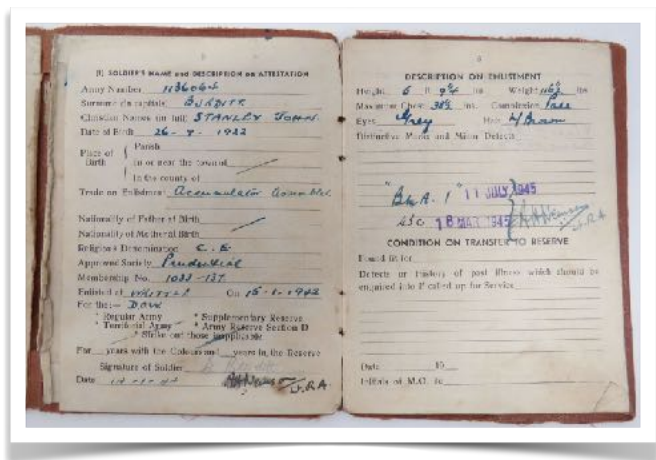 [I] SOLDIER'S NAME and DESCRIPTION on ATTESTATION
Army Number
Surname (in capitals) BURDITT
Christian Names (in full) STANLEY JOHN
Date of Birth 26 - - 1922
Place of Birth
Parish
In or near the town of
In the county of
Trade on Enlistment Accumulator
Nationality of Father at Birth
Nationality of Mother at Birth
Religious Denomination C. E
Approved Society Prudential
Membership No. 1033 - 137
Enlisted at On 15 - 1 - 1942
For the:- DOW
* Regular Army * Supplementary Reserve
* Territorial Army * Army Reserve Section D
* Strike out those inapplicable
For years with the Colours and years in the Reserve
Signature of Soldier
Date
DESCRIPTION ON ENLISTMENT
Height 5 ft. ins. Weight lbs
Maximum Chest ins. Complexion
Eyes Grey Hair Brown
Distinctive Marks and Minor Defects
11 JULY 1945
18 MAR 1945
CONDITION ON TRANSFER TO RESERVE
Found fit for
Defects or history of past illness which should be
enquired into if called up for Service
Date 19
Initials of M.O. i/c